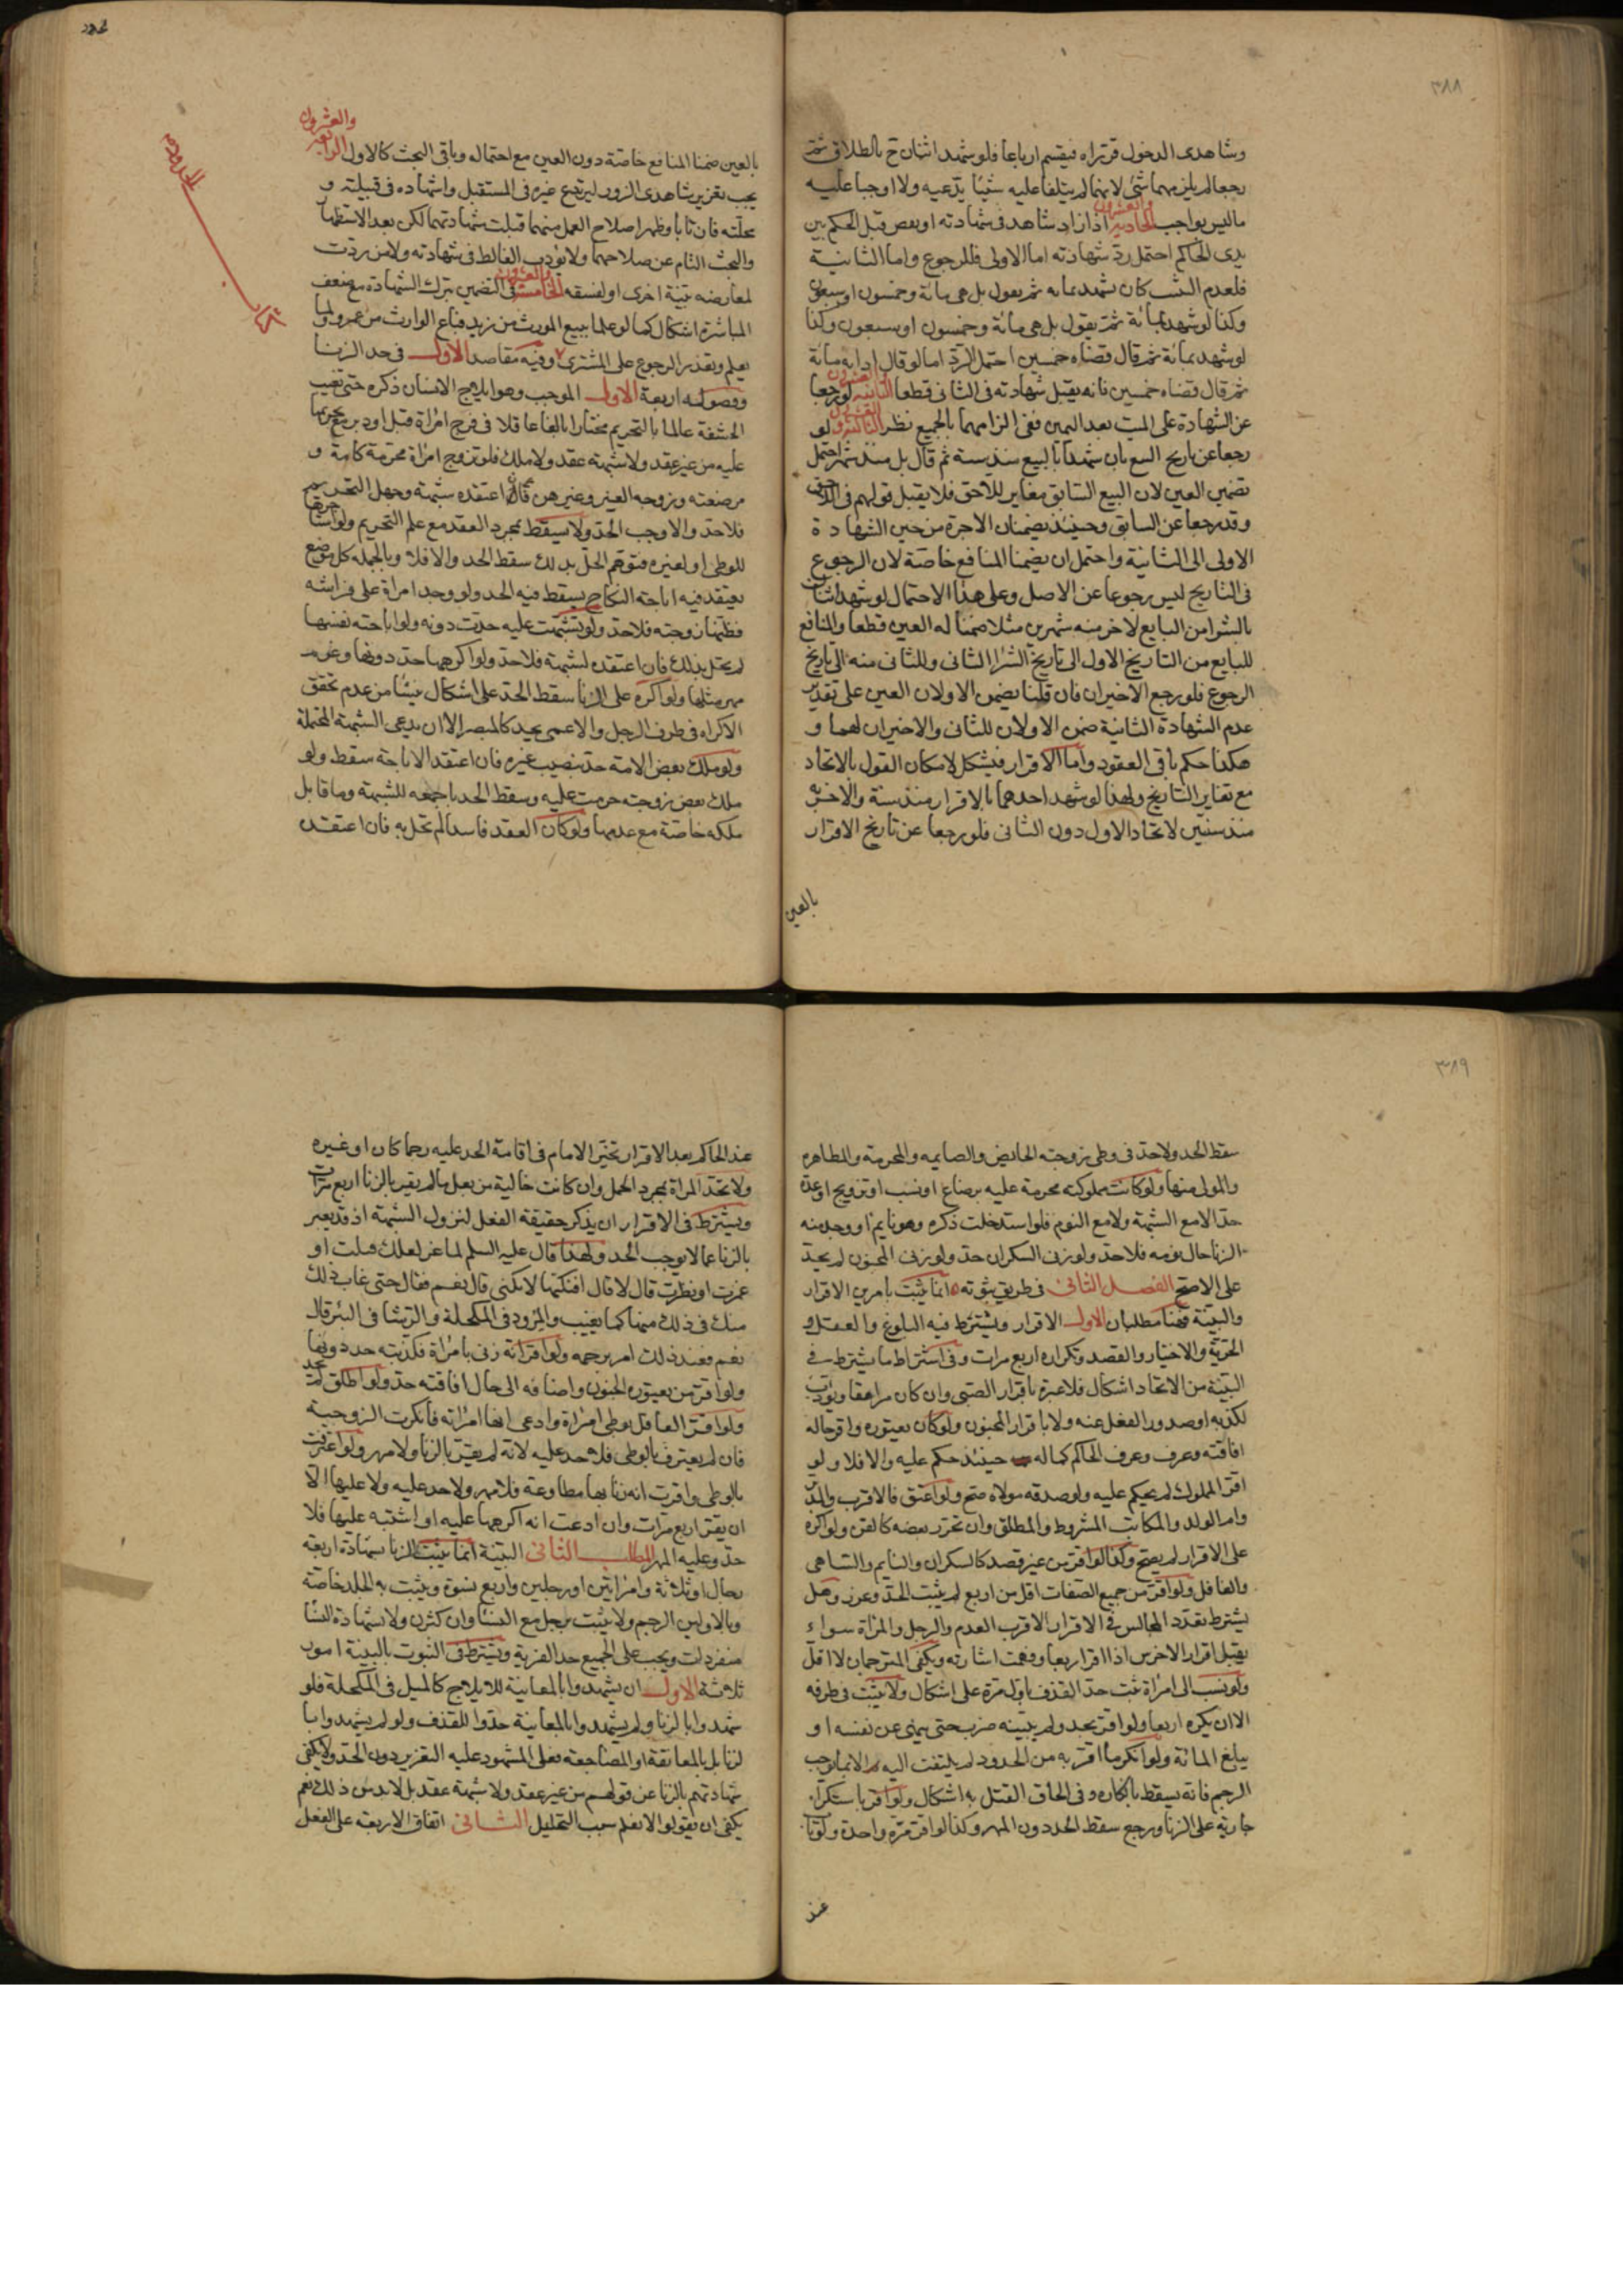 ٣٨٨
وشاهدى الدخول قرراه فيقسم ارباعا فلو شهد اثنان ح بالطلاق ثم
رجعا لم يلزمهما شئ لانهما لم يتلفا عليه شيئا يدعيه ولا اوجبا عليه
ما ليس بواجب الحادية والعشرون اذا زاد شاهد فى شهادته او نقص قبل الحكم بين
يدى الحاكم احتمل رد شهادته اما الاولى فللرجوع واما الثانية
فلعدم التثبت كان شهد بمايه ثم يقول بل هى مائة وخمسون او سبعون
وكذا لو شهد بمائة ثم يقول بل هى مائة وخمسون او سبعون وكذا
لو شهد بمائة ثم قال قضاه خمسين احتمل الرد اما لو قال ادانه مائة
ثم قال قضاه خمسين فانه يقبل شهادته فى الثانى قطعا الثانية والعشرون لو رجعا
عن الشهادة على الميت بعد اليمين ففى الزامهما بالجميع نظر الثالثة والعشرون لو
رجعا عن تاريخ البيع بان شهدا بالبيع منذ سنة ثم قال بل منذ شهر احتمل
تضمين العين لان البيع السابق مغاير للاحق فلا يقبل قولهم فى اللاحق
وقد رجعا عن السابق وحينئذ يضمنان الاجرة من حين الشهادة
الاولى الى الثانية واحتمل ان يضمنا المنافع خاصة لان الرجوع
فى التاريخ ليس رجوعا عن الاصل وعلى هذا الاحتمال لو شهد اثنان
بالشرا من البايع لاخر منه شهرين مثلا ضمنا له العين قطعا والمنافع
للبايع من التاريخ الاول الى تاريخ الشرا الثانى وللثانى منه الى تاريخ
الرجوع فلو رجع الاخيران فان قلنا يضمن الاولان العين على تقدير
عدم الشهادة الثانية ضمن الاولان للثانى والاخيران لهما و
هكذا حكم باقى العقود واما الاقرار فيشكل لامكان القول بالاتحاد
مع تغاير التاريخ ولهذا لو شهد احدهما بالاقرار منذ سنة والاخر به
منذ سنتين لاتحاد الاول دون الثانى فلو رجعا عن تاريخ الاقرار
بالعين
بالعين ضمنا المنافع خاصة دون العين مع احتماله وباقى البحث كالاول الرابعة والعشرون
يجب تعزير شاهدى الزور ليرتدع غيره فى المستقبل واشهاده فى قبيلته و
محلته فان تابا وظهر اصلاح العمل منهما قبلت شهادتهما لكن بعد الاستظهار
والبحث التام عن صلاحهما ولا يؤدب الغالط فى شهادته ولا من ردت
لمعارضه بينة اخرى او لفسقه الخامسة والعشرون فى التضمين بترك الشهادة مع ضعف
المباشرة اشكال كما لو علما ببيع المورث من زيد فباع الوارث من عمرو ولما
يعلم وتعذر الرجوع على المشترى وفيه مقاصد الاول فى حد الزنا
وفصوله اربعة الاول الموجب وهو ايلاج الانسان ذكره حتى تغيب
الحشفة عالما بالتحريم مختارا بالغا عاقلا فى فرج امراة قبل او دبر مع تحريمها
عليه من غير عقد ولا شبهة عقد ولا ملك فلو تزوج امراة محرمة كامة و
مرضعته وزوجه الغير وغيرهن فان اعتقده شبهة وجهل التحريم
فلا حد والا وجب الحد ولا يسقط بمجرد العقد مع علم التحريم ولو استاجرها
للوطى او لغيره فتوهم الحل بذلك سقط الحد والا فلا وبالجمله كل موضع
يعتقد فيه اباحة النكاح يسقط فيه الحد ولو وجد امراة على فراشه
فظنها زوجته فلا حد ولو تشبهت عليه حدت دونه ولو اباحته نفسها
لم يحل بذلك فان اعتقده لشبهة فلا حد ولو اكرهها حد دونها وغرم
مهر مثلها ولو اكره على الزنا سقط الحد على اشكال ينشا من عدم تحقق
الاكراه فى طرف الرجل والاعمى يحد كالمبصر الا ان يدعى الشبهة المحتملة
ولو ملك بعض الامة حد بنصيب غيره فان اعتقد الاباحة سقط ولو
ملك بعض زوجته حرمت عليه وسقط الحد باجمعه للشبهة وما قابل
ملكه خاصة مع عدمها ولو كان العقد فاسدا لم تحل به فان اعتقد
٣٨٩
سقط الحد ولا حد فى وطى زوجته الحايض والصايمه والمحرمة والمظاهره
والمولى منها ولو كانت مملوكته محرمة عليه برضاع او نسب او تزويج او عدة
حد الا مع الشبهة ولا مع النوم فلو استدخلت ذكره وهو نايم او وجد منه
الزنا حال نومه فلا حد ولو زنى السكران حد ولو زنى المجنون لم يحد
على الاصح الفصل الثانى فى طريق ثبوته انما يثبت بامرين الاقرار
والبينة فهنا مطلبان الاول الاقرار ويشترط فيه البلوغ والعقل و
الحرية والاختيار والقصد وتكراره اربع مرات وفى اشتراط ما يشترط فى
البينة من الاتحاد اشكال فلا عبرة باقرار الصبى وان كان مراهقا ويؤدب
لكذبه او صدور الفعل عنه ولا باقرار المجنون ولو كان يعتوره واقر حاله
افاقته وعرف وعرف الحاكم كماله حينئذ حكم عليه والا فلا ولو
اقر المملوك لم يحكم عليه ولو صدقه مولاه صح ولو اعتق فالاقرب والمدبر
وام الولد والمكاتب المشروط والمطلق وان تحرر بعضه كالقن ولو اكره
على الاقرار لم يصح وكذا لو اقر من غير قصد كالسكران والنايم والساهى
والغافل ولو اقر من جميع الصفات اقل من اربع لم يثبت الحد وعزر وهل
يشترط تعدد المجالس فى الاقرار الاقرب العدم والرجل والمراة سواء
يقبل اقرار الاخرس اذا اقر اربعا وفهمت اشارته ويكفى المترجمان لا اقل
ولو نسب الى امراة ثبت حد القذف باول مرة على اشكال ولا يثبت فى طرفه
الا ان يكره اربعا ولو اقر بحد ولم يبينه ضرب حتى ينهى عن نفسه او
يبلغ المائة ولو انكر ما اقر به من الحدود لم يلتفت اليه الا بما يوجب
الرجم فانه يسقط بانكاره وفى الحاق القتل به اشكال ولو اقر باستكراه
جارية على الزنا ورجع سقط الحد دون المهر وكذا لو اقر مرة واحدة ولو تاب
عند
عند الحاكم بعد الاقرار تخير الامام فى اقامة الحد عليه رجما كان او غيره
ولا تحد المراة بمجرد الحمل وان كانت خالية من بعل ما لم يقر بالزنا اربع مرات
ويشترط فى الاقرار ان يذكر حقيقة الفعل لتزول الشبهة اذ قد يعبر
بالزنا عما لا يوجب الحد ولهذا قال عليه السلم لماعز لعلك قبلت او
غمزت او نظرت قال لا قال افنكتها لا تكنى قال نعم فقال حتى غاب ذلك
منك فى ذلك منها كما يغيب والمرود فى المكحلة والرشا فى البئر قال
نعم فعند ذلك امر برجمه ولو اقر انه زنى بامراة فكذبته حد دونها
ولو اقر من يعتوره الجنون واضافه الى حال افاقته حد ولو اطلق لم يحد
ولو اقر العاقل بوطى امراة وادعى انها امراته فانكرت الزوجية
فان لم يعترف بالوطى فلا حد عليه لانه لم يقر بالزنا ولا مهر ولو اعترفت
بالوطى واقرت انه زنا بها مطاوعة فلا مهر ولا حد عليه ولا عليها الا
ان يقر اربع مرات وان ادعت انه اكرهها عليه او اشتبه عليها فلا
حد وعليه المهر المطلب الثانى البينة انما يثبت الزنا بشهادة اربعة
رجال او ثلاثة وامراتين او رجلين واربع نسوة ويثبت به الجلد خاصه
وبالاولين الرجم ولا يثبت برجل مع النسا وان كثرن ولا شهادة النسا
منفردات ويجب على الجميع حد الفرية ويشترط فى الثبوت بالبينة امور
ثلاثة الاول ان يشهدوا بالمعاينة للايلاج كالميل فى المكحلة فلو
شهدوا بالزنا ولم يشهدوا بالمعاينة حدوا للقذف ولو لم يشهدوا با
لزنا بل بالمعانقة او المضاجعة فعلى المشهود عليه التعزير دون الحد ولا يكفى
شهادتهم بالزنا عن قولهم من غير عقد ولا شبهة عقد بل لابد من ذلك نعم
يكفى ان يقولوا لا نعلم سبب التحليل الثانى اتفاق الاربعة على الفعل